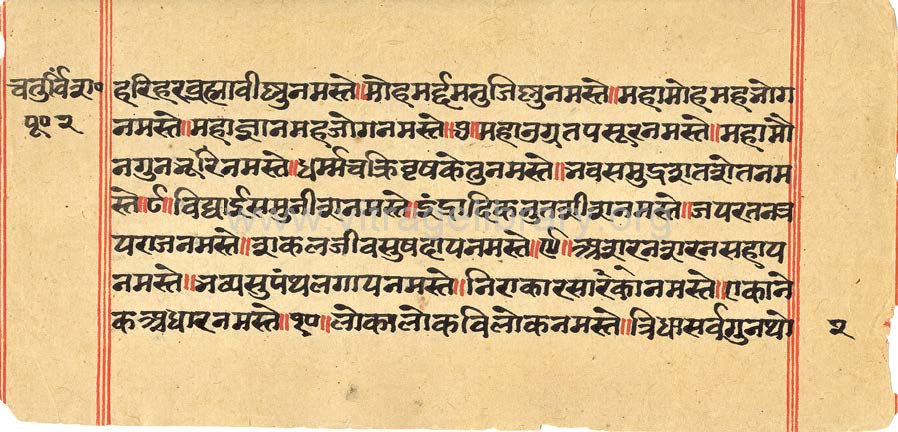 चतुर्विंश॰
पू॰ २
हरिहरब्रह्माविष्णुनमस्ते॥मोहमर्द्दमनुजिष्णुनमस्ते॥महामोहमहजोग
नमस्ते॥महाज्ञानमहजोगनमस्ते॥७॥महानुगुतपसूरनमस्ते॥महामौ
नगुनभूरिनमस्ते॥धर्म्मचक्रिवृषकेतुनमस्ते॥भवसमुद्रशतशेतनम
स्ते॥८॥विद्याईसमुनीशनमस्ते॥इंद्रादिकनुतशीशनमस्ते॥जपरतनत्र
पराजनमस्ते॥शकलजीवसुषदायनमस्ते॥९॥अशरनशरनसहाय
नमस्ते॥भव्यसुपंथलगायनमस्ते॥निराकारसारंकानमस्ते॥एकाने
कअधारनमस्ते॥१०॥लोकालोकविलोकनमस्ते॥त्रिधासर्वगुनथो
२
www.vitragelibrary.org